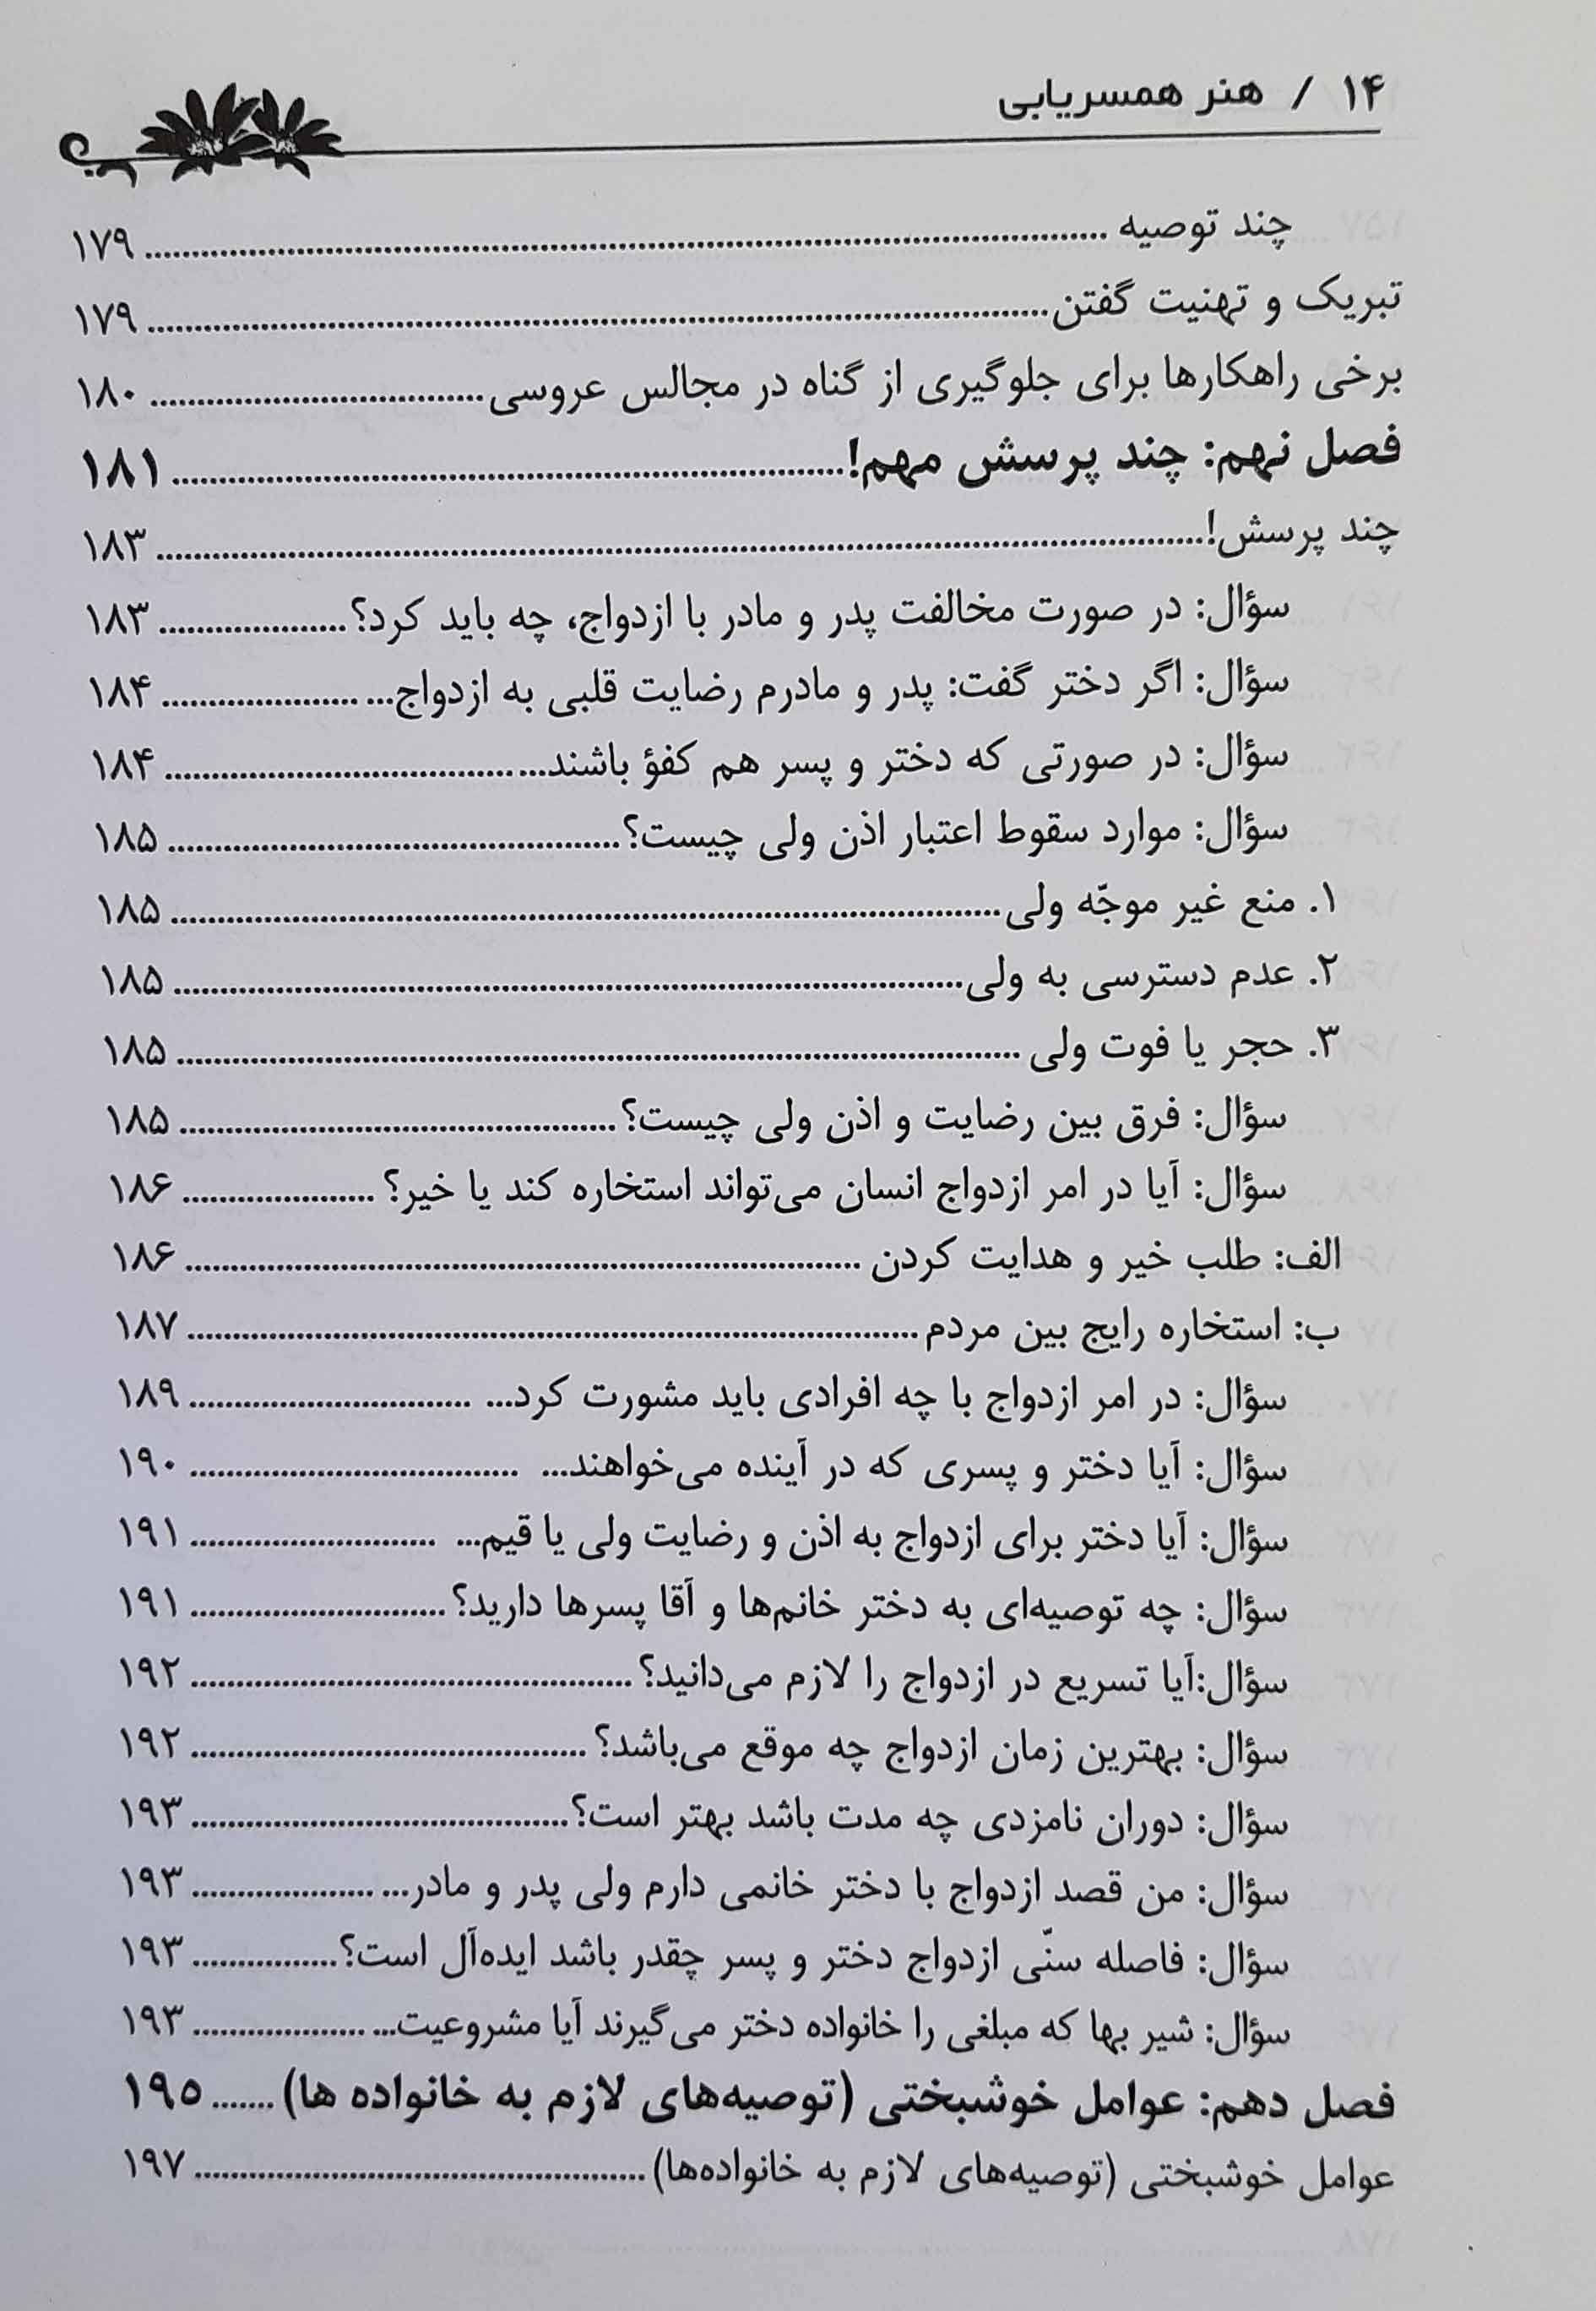 ۱۴ / هنر همسریابی
چند توصیه ........ ۱۷۹
تبریک و تهنیت گفتن ........ ۱۷۹
برخی راهکارها برای جلوگیری از گناه در مجالس عروسی ........ ۱۸۰
فصل نهم: چند پرسش مهم! ........ ۱۸۱
چند پرسش! ........ ۱۸۳
سؤال: در صورت مخالفت پدر و مادر با ازدواج، چه باید کرد؟ ........ ۱۸۳
سؤال: اگر دختر گفت: پدر و مادرم رضایت قلبی به ازدواج... ........ ۱۸۴
سؤال: در صورتی که دختر و پسر هم کفؤ باشند... ........ ۱۸۴
سؤال: موارد سقوط اعتبار اذن ولی چیست؟ ........ ۱۸۵
۱. منع غیر موجّه ولی ........ ۱۸۵
۲. عدم دسترسی به ولی ........ ۱۸۵
۳. حجر یا فوت ولی ........ ۱۸۵
سؤال: فرق بین رضایت و اذن ولی چیست؟ ........ ۱۸۵
سؤال: آیا در امر ازدواج انسان می‌تواند استخاره کند یا خیر؟ ........ ۱۸۶
الف: طلب خیر و هدایت کردن ........ ۱۸۶
ب: استخاره رایج بین مردم ........ ۱۸۷
سؤال: در امر ازدواج با چه افرادی باید مشورت کرد... ........ ۱۸۹
سؤال: آیا دختر و پسری که در آینده می‌خواهند... ........ ۱۹۰
سؤال: آیا دختر برای ازدواج به اذن و رضایت ولی یا قیم... ........ ۱۹۱
سؤال: چه توصیه‌ای به دختر خانم‌ها و آقا پسرها دارید؟ ........ ۱۹۱
سؤال:آیا تسریع در ازدواج را لازم می‌دانید؟ ........ ۱۹۲
سؤال: بهترین زمان ازدواج چه موقع می‌باشد؟ ........ ۱۹۲
سؤال: دوران نامزدی چه مدت باشد بهتر است؟ ........ ۱۹۳
سؤال: من قصد ازدواج با دختر خانمی دارم ولی پدر و مادر... ........ ۱۹۳
سؤال: فاصله سنّی ازدواج دختر و پسر چقدر باشد ایده‌آل است؟ ........ ۱۹۳
سؤال: شیر بها که مبلغی را خانواده دختر می‌گیرند آیا مشروعیت... ........ ۱۹۳
فصل دهم: عوامل خوشبختی (توصیه‌های لازم به خانواده ها) ....... ۱۹۵
عوامل خوشبختی (توصیه‌های لازم به خانواده‌ها) ........ ۱۹۷